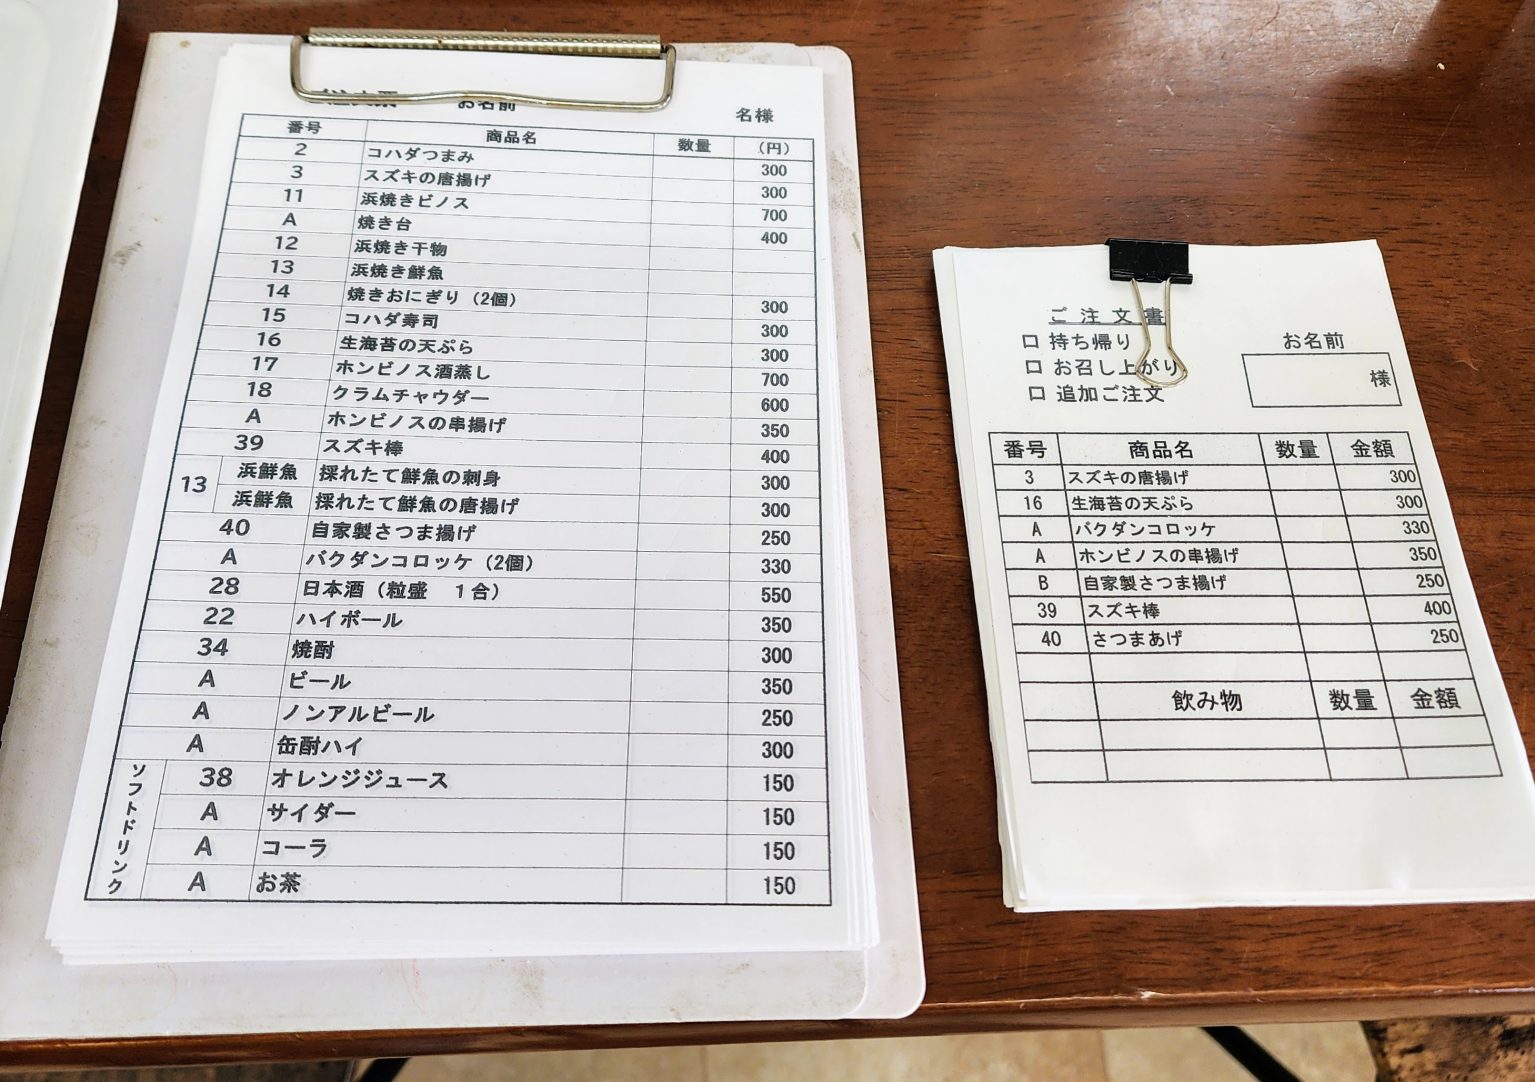 ご注文票 お名前 名様
番号 商品名 数量 (円)
2 コハダつまみ 300
3 スズキの唐揚げ 300
11 浜焼きビノス 700
A 焼き台 400
12 浜焼き干物
13 浜焼き鮮魚
14 焼きおにぎり（2個） 300
15 コハダ寿司 300
16 生海苔の天ぷら 300
17 ホンビノス酒蒸し 700
18 クラムチャウダー 600
A ホンビノスの串揚げ 350
39 スズキ棒 400
13 浜鮮魚 採れたて鮮魚の刺身 300
浜鮮魚 採れたて鮮魚の唐揚げ 300
40 自家製さつま揚げ 250
A バクダンコロッケ（2個） 330
28 日本酒（粒盛 １合） 550
22 ハイボール 350
34 焼酎 300
A ビール 350
A ノンアルビール 250
A 缶酎ハイ 300
ソフトドリンク
38 オレンジジュース 150
A サイダー 150
A コーラ 150
A お茶 150
ご注文書
□ 持ち帰り お名前
□ お召し上がり 様
□ 追加ご注文
番号 商品名 数量 金額
3 スズキの唐揚げ 300
16 生海苔の天ぷら 300
A バクダンコロッケ 330
A ホンビノスの串揚げ 350
B 自家製さつま揚げ 250
39 スズキ棒 400
40 さつまあげ 250
飲み物 数量 金額